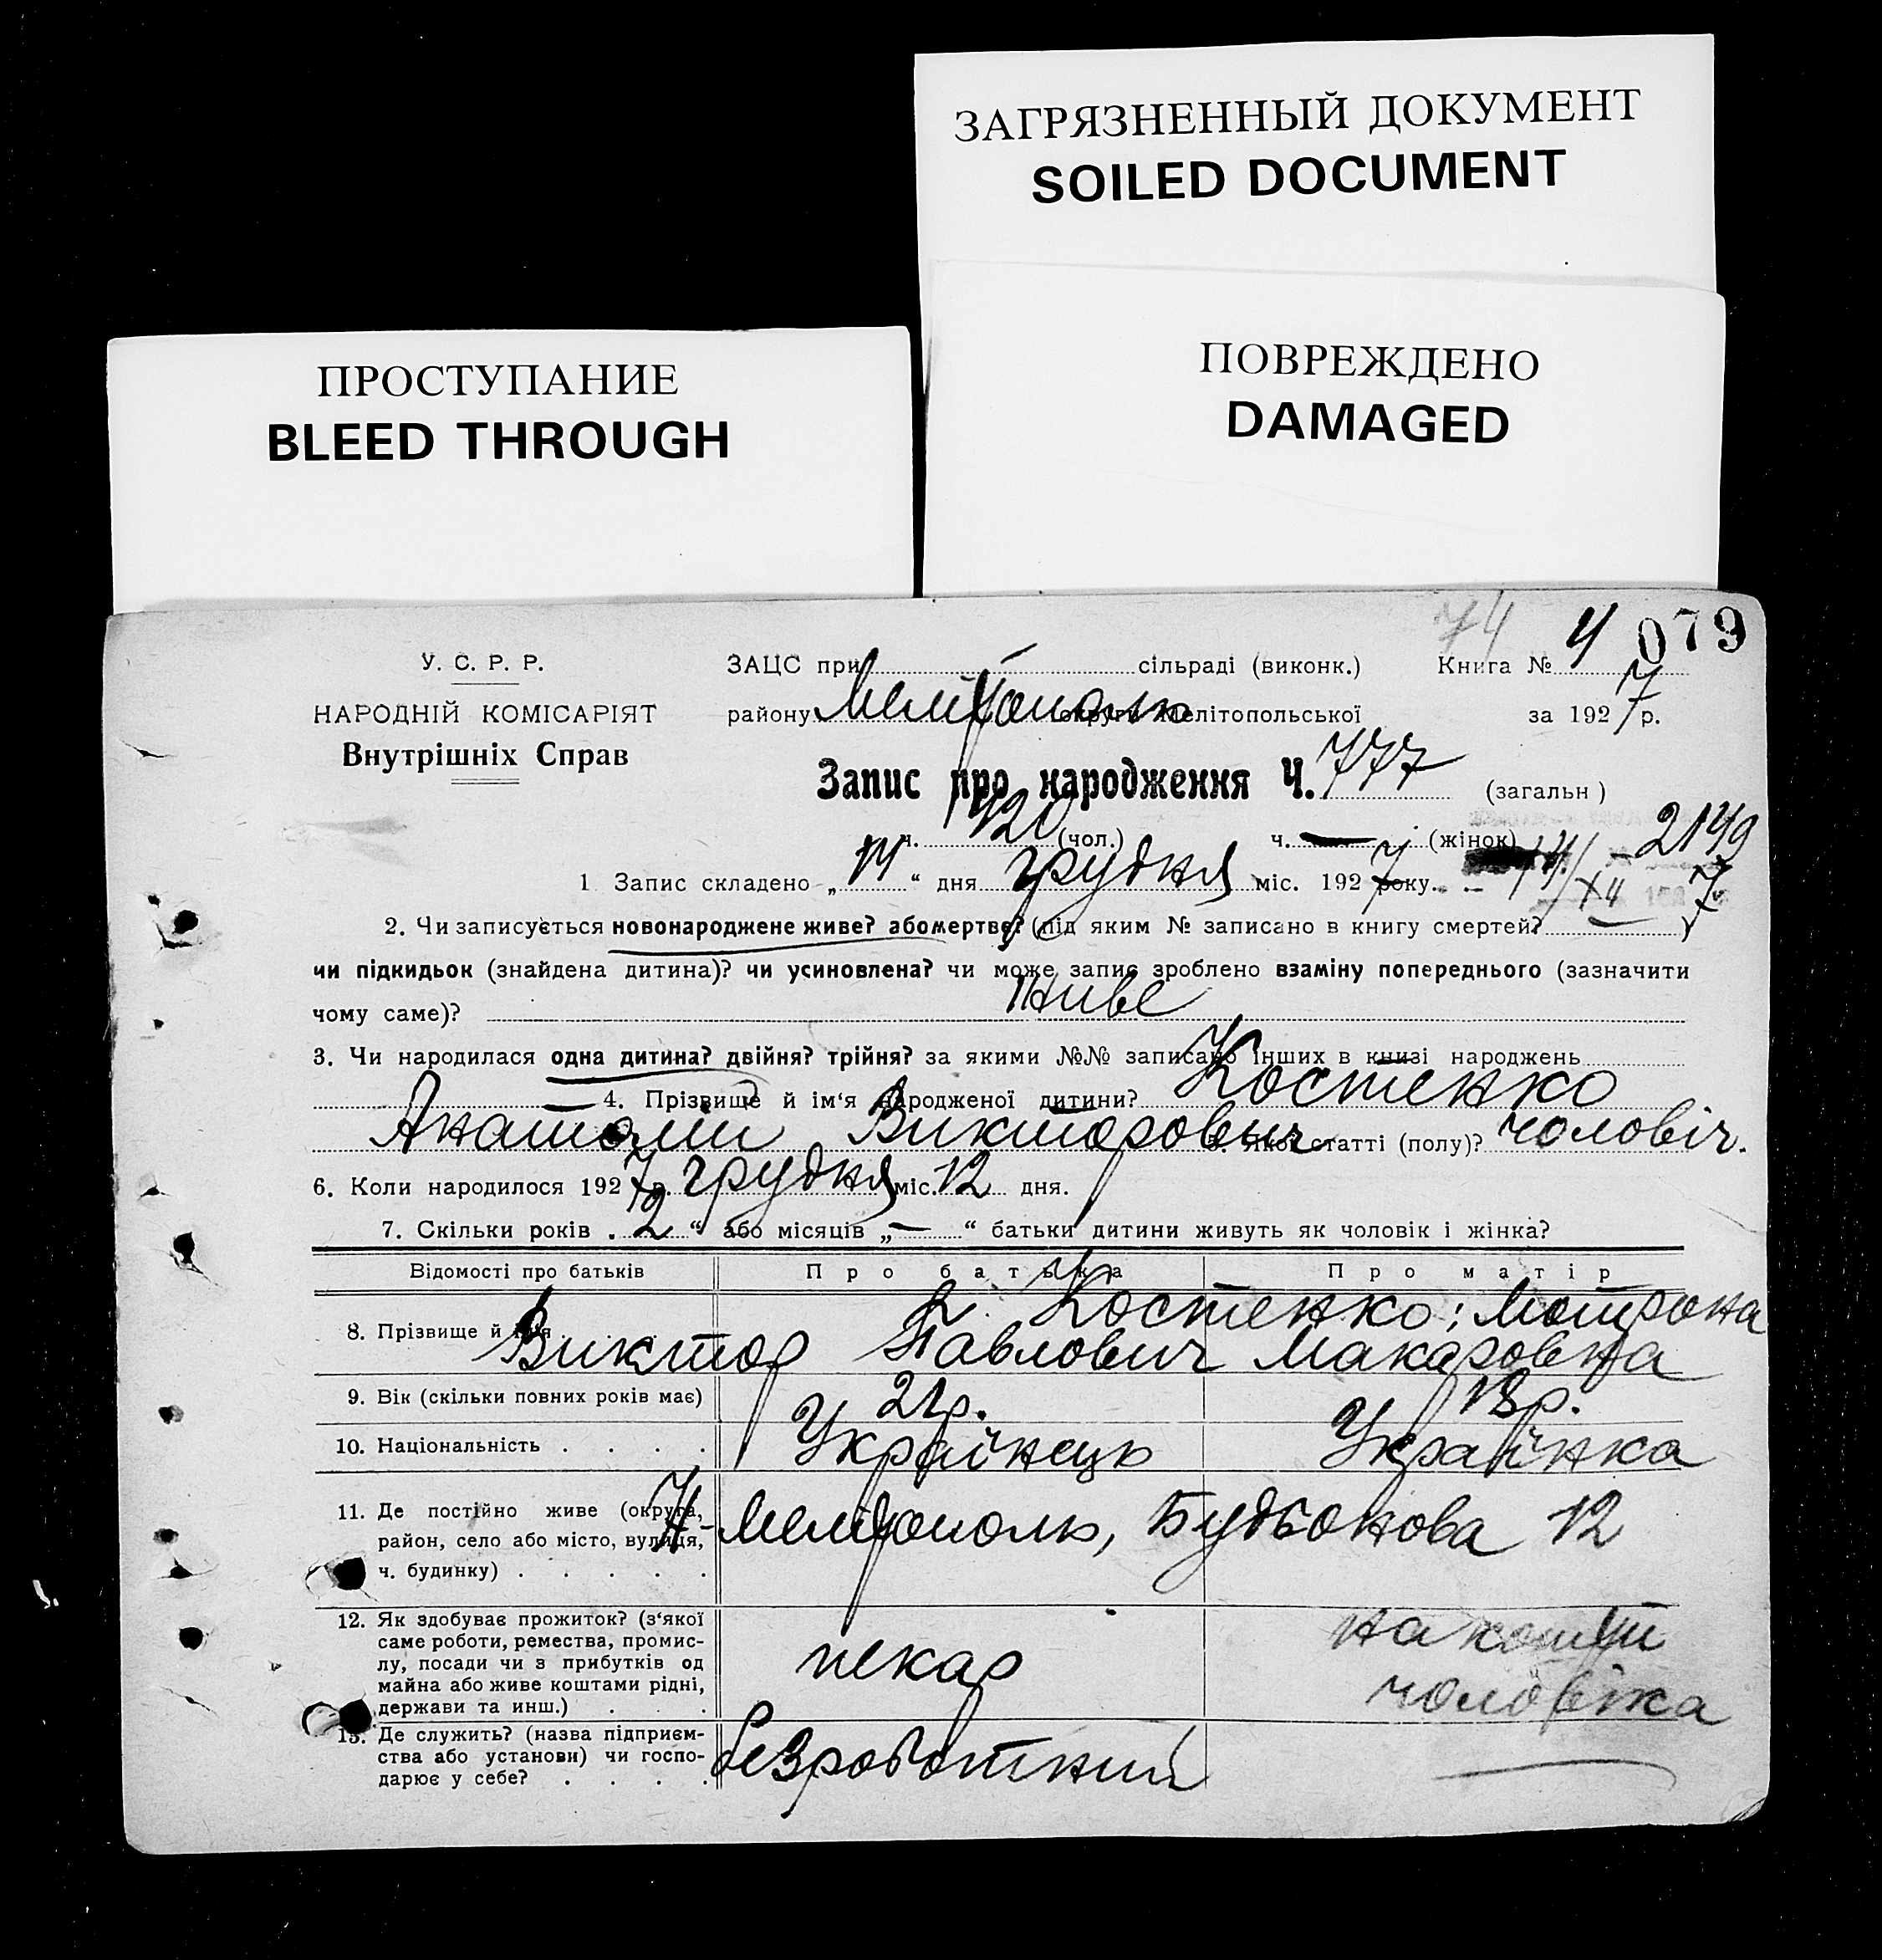 ЗАГРЯЗНЕННЫЙ ДОКУМЕНТ
SOILED DOCUMENT
ПРОСТУПАНИЕ
BLEED THROUGH
ПОВРЕЖДЕНО
DAMAGED
74 4 079
У. С. Р. Р.
НАРОДНІЙ КОМІСАРІЯТ
Внутрішніх Справ
ЗАЦС при — сільраді (виконк.) Книга №
району Мелітополь округи Мелітопольської за 1927 р.
Запис про народження Ч. 777 (загальн)
ч. 420 (чол.) ч. — (жінок) 2149
1 Запис складено „14“ дня грудня міс. 1927 року. 14/XII 7
2. Чи записується новонароджене живе? або мертве? (під яким № записано в книгу смертей? —)
чи підкидьок (знайдена дитина)? чи усиновлена? чи може запис зроблено взаміну попереднього (зазначити
чому саме)? живе
3. Чи народилася одна дитина? двійня? трійня? за якими №№ записано інших в книзі народжень
— 4. Прізвище й ім'я народженої дитини? Костенко
Анатолій Викторович 5. Якої статті (полу)? чоловіч.
6. Коли народилося 1927 р. грудня міс. 12 дня.
7. Скільки років „2“ або місяців „—“ батьки дитини живуть як чоловік і жінка?
Відомості про батьків Про батька Про матір
8. Прізвище й ім'я Костенко; Мотрона
Виктор Павлович Макаровна
9. Вік (скільки повних років має) 21р. 18р.
10. Національність . . . . Українець Українка
11. Де постійно живе (округа,
район, село або місто, вулиця,
ч. будинку) . . . . .
Н-Мелітополь, Будьонова 12
12. Як здобуває прожиток? (з'якої
саме роботи, ремества, промис-
лу, посади чи з прибутків од
майна або живе коштами рідні,
держави та инш.) . . .
пекар
на кошти
чоловіка
13. Де служить? (назва підприєм-
ства або установи) чи госпо-
дарює у себе? . . . .
безроботний —